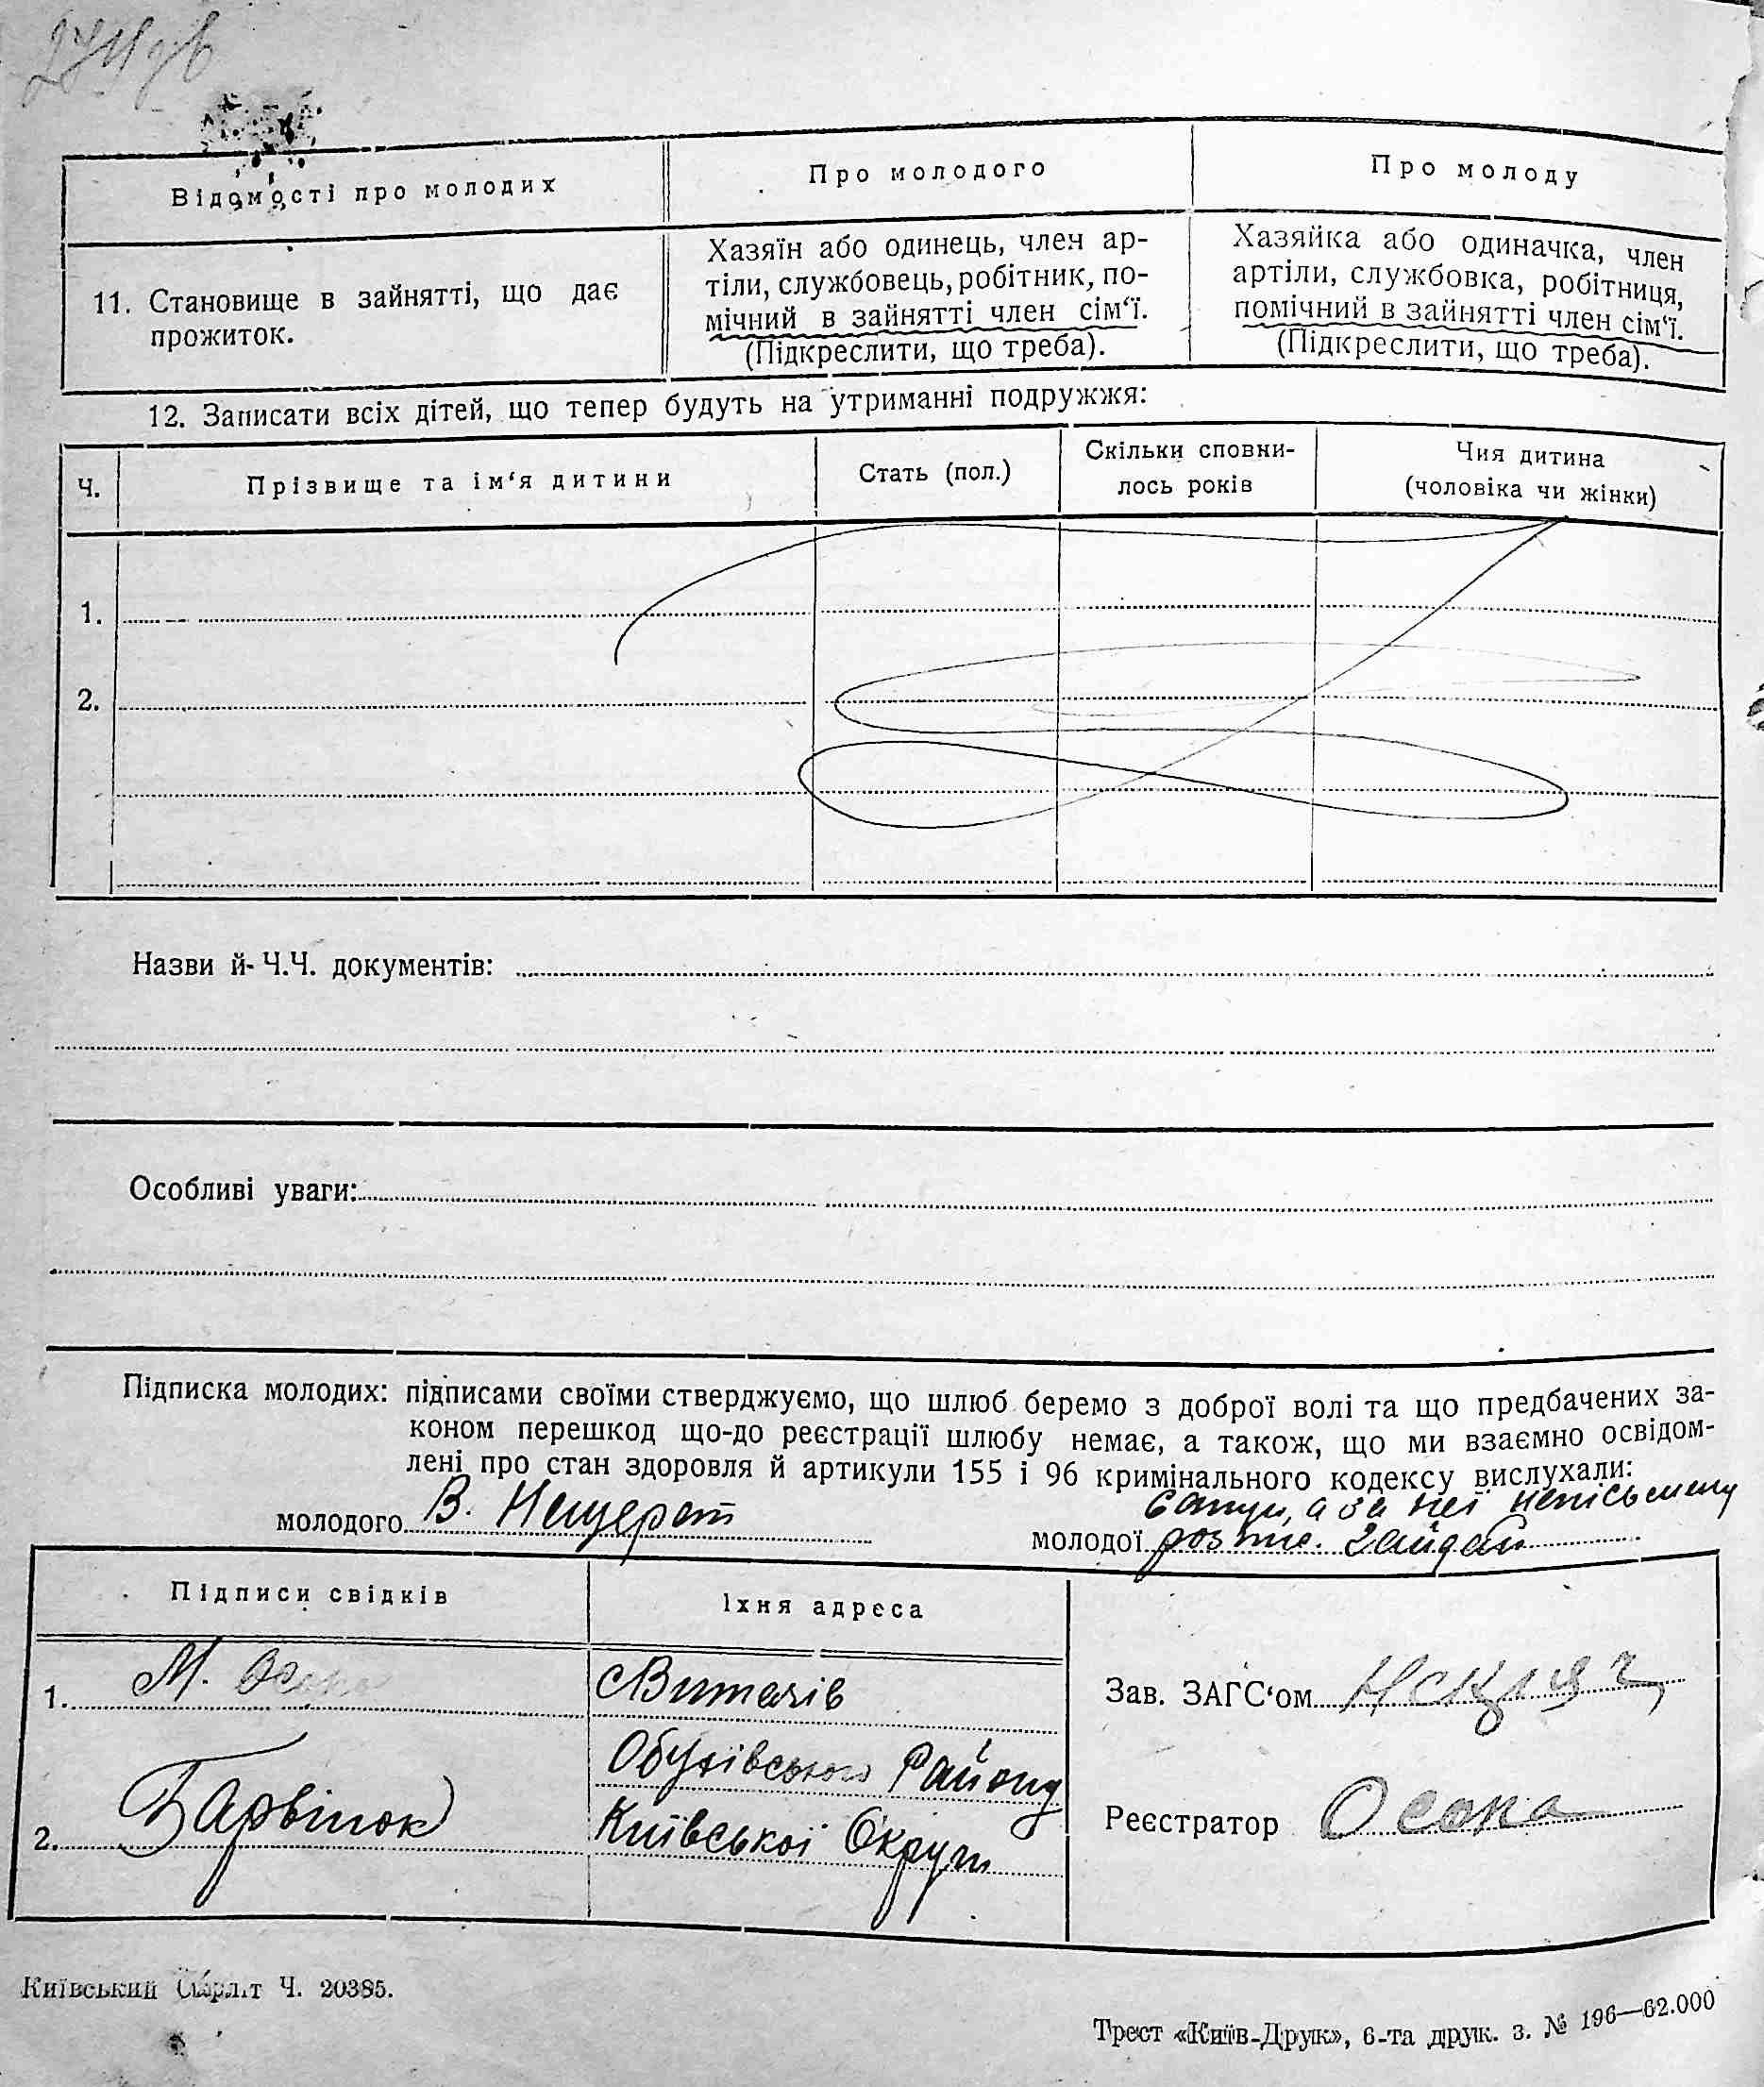 Відомості про молодих
Про молодого
Про молоду
11. Становище в зайнятті, що дає
прожиток.
Хазяїн або одинець, член ар-
тіли, службовець, робітник, по-
мічний в зайнятті член сім‘ї.
(Підкреслити, що треба).
Хазяйка або одиначка, член
артіли, службовка, робітниця,
помічний в зайнятті член сім‘ї.
(Підкреслити, що треба).
12. Записати всіх дітей, що тепер будуть на утриманні подружжя:
Ч.
Прізвище та ім‘я дитини
Стать (пол.)
Скільки сповни-
лось років
Чия дитина
(чоловіка чи жінки)
1.
2.
Назви й Ч.Ч. документів:
Особливі уваги:
Підписка молодих: підписами своїми стверджуємо, що шлюб беремо з доброї волі та що предбачених за-
коном перешкод що-до реєстрації шлюбу немає, а також, що ми взаємно освідом-
лені про стан здоровля й артикули 155 і 96 кримінального кодексу вислухали:
молодого В. Нещерет
а за неї неписьмену
молодої розпис. Гайдай
Підписи свідків
Їхня адреса
1. М. Осока
Витачів
Обухівського Району
2. Барвінок
Київської Округи
Зав. ЗАГС‘ом
Реєстратор Осока
Київський Окрліт Ч. 20385.
Трест «Київ-Друк», 6-та друк. з. № 196—62.000